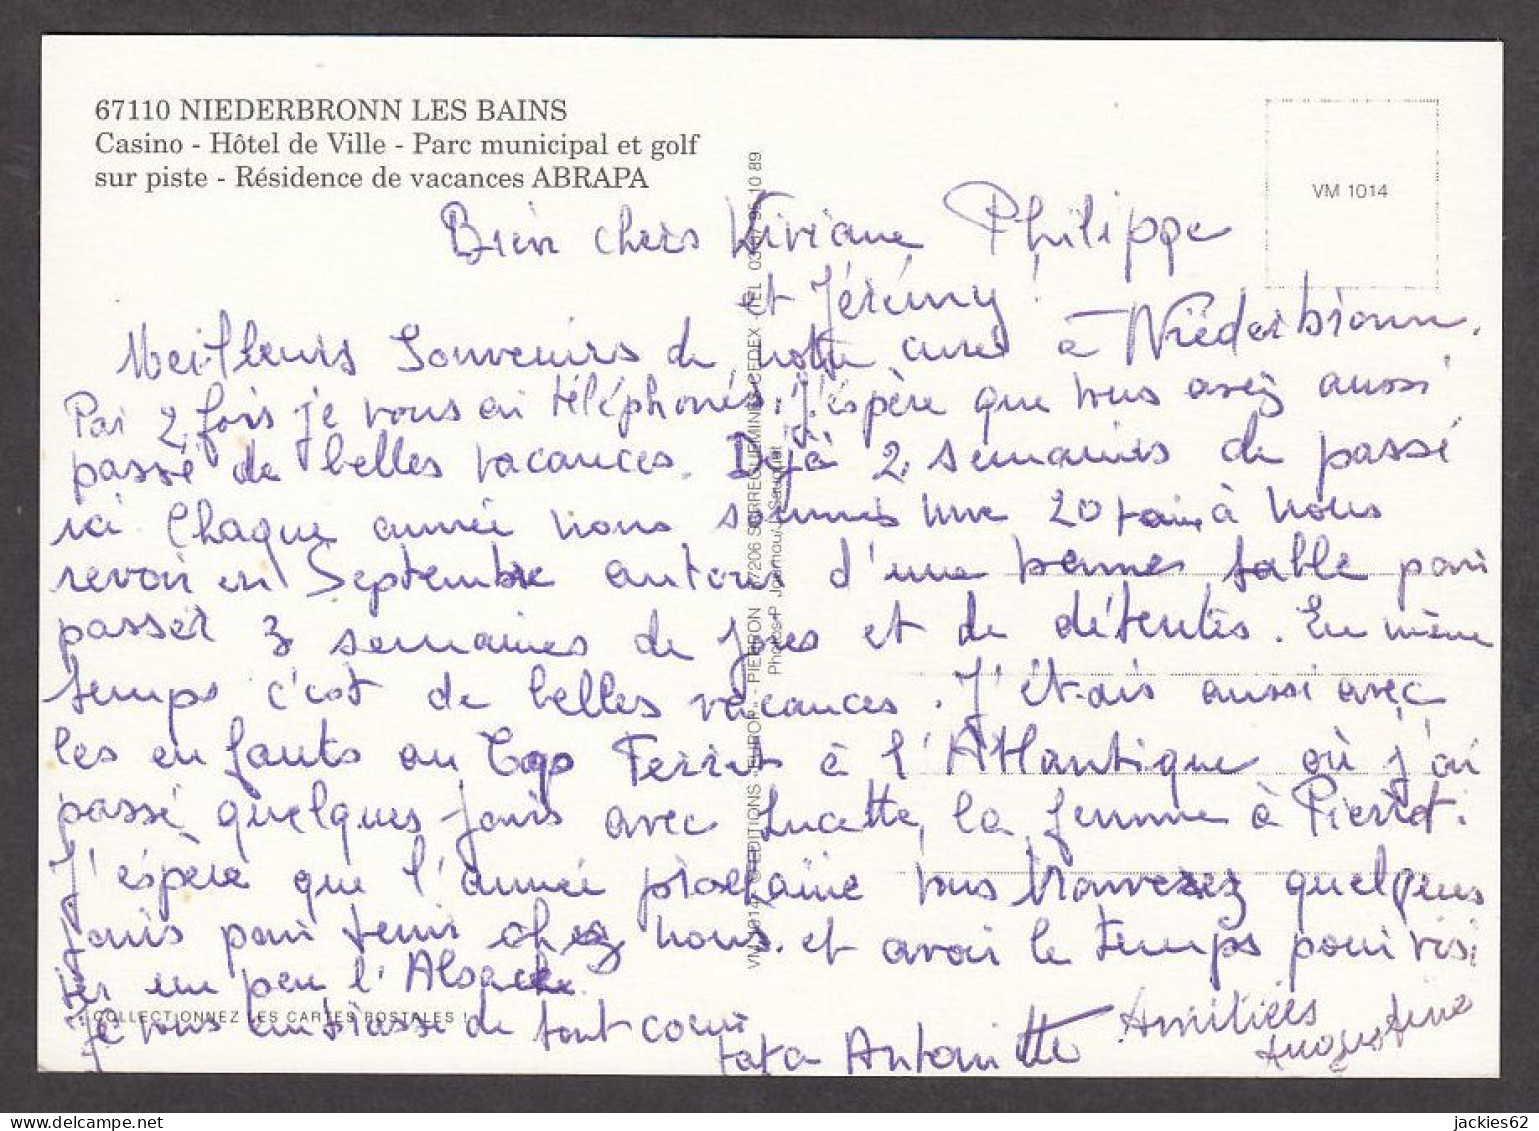 67110 NIEDERBRONN LES BAINS
Casino - Hôtel de Ville - Parc municipal et golf
sur piste - Résidence de vacances ABRAPA
VM 1014
Bien chers Viviane Philippe
et Jérémy !
Meilleurs Souvenirs de notre cure à Niederbronn.
Par 2 fois je vous ai téléphonés. J'espère que vous avez aussi
passé de belles vacances. Déjà 2 semaines de passé
ici Chaque année nous sommes une 20taine à nous
revoir en Septembre autour d'une bonne table pour
passer 3 semaines de joies et de détentes. En même
temps c'est de belles vacances. J'étais aussi avec
les enfants au Cap Ferret à l'Atlantique où j'ai
passé quelques jours avec Lucette, la femme à Pierrot.
J'espère que l'année prochaine vous trouverez quelques
jours pour venir chez nous. et avoir le temps pour visi
ter un peu l'Alsace.
COLLECTIONNEZ LES CARTES POSTALES !
Je vous embrasse de tout coeur
tata Antoinette Amitiées
Augustine
VM 1014 © EDITIONS EUROP PIERRON 57206 SARREGUEMINES CEDEX TEL 03 87 95 10 89
Photos P
jackies62